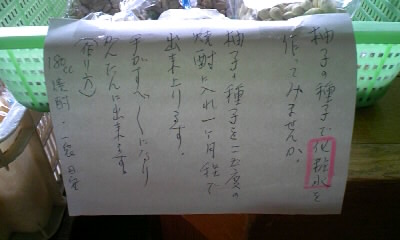 柚子の種子で化粧水を
作ってみませんか。
柚子の種子を一五〇gの
焼酎に入れ一ヶ月程で
出来上ります。
手がすべすべになり
かんたんに出来ます
(作り方)
焼酎・一袋